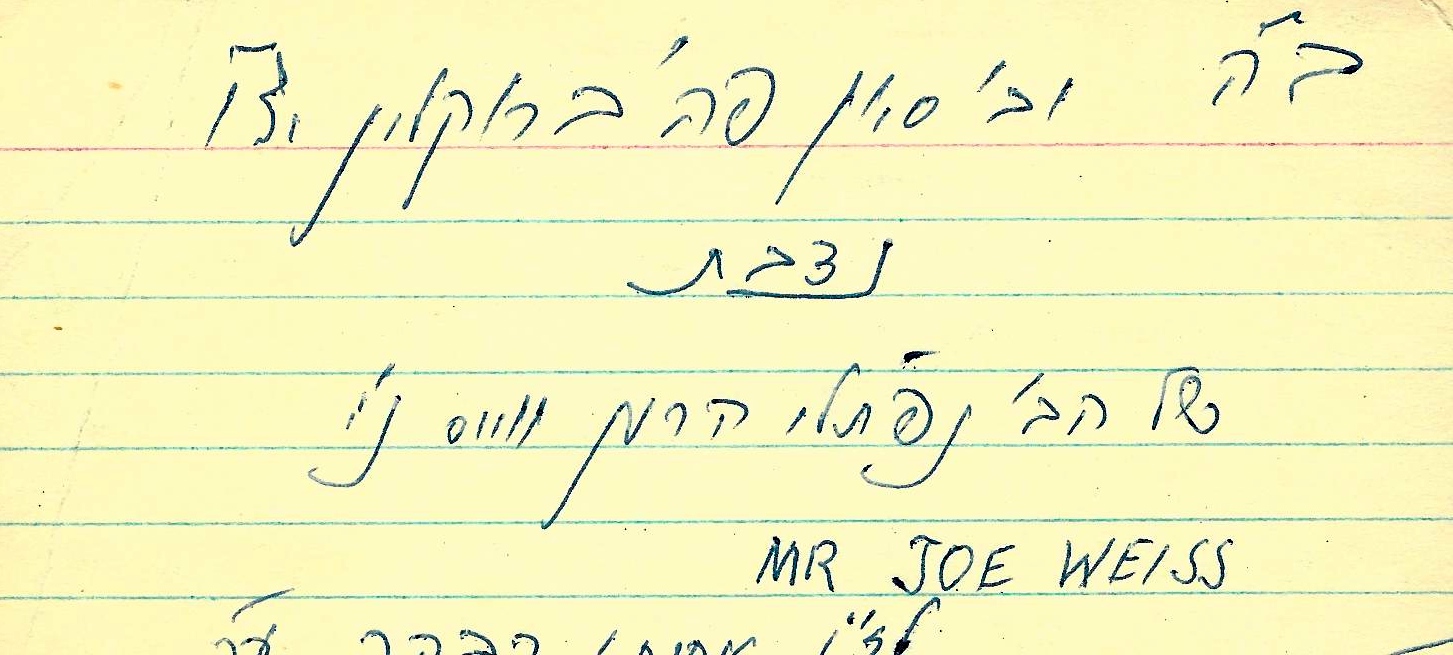 ב"ה וב' סיון פה' ברוקלין יצ"ו
נדבת
של הב' נפתלי הרמן ווייס נ"י
MR JOE WEISS